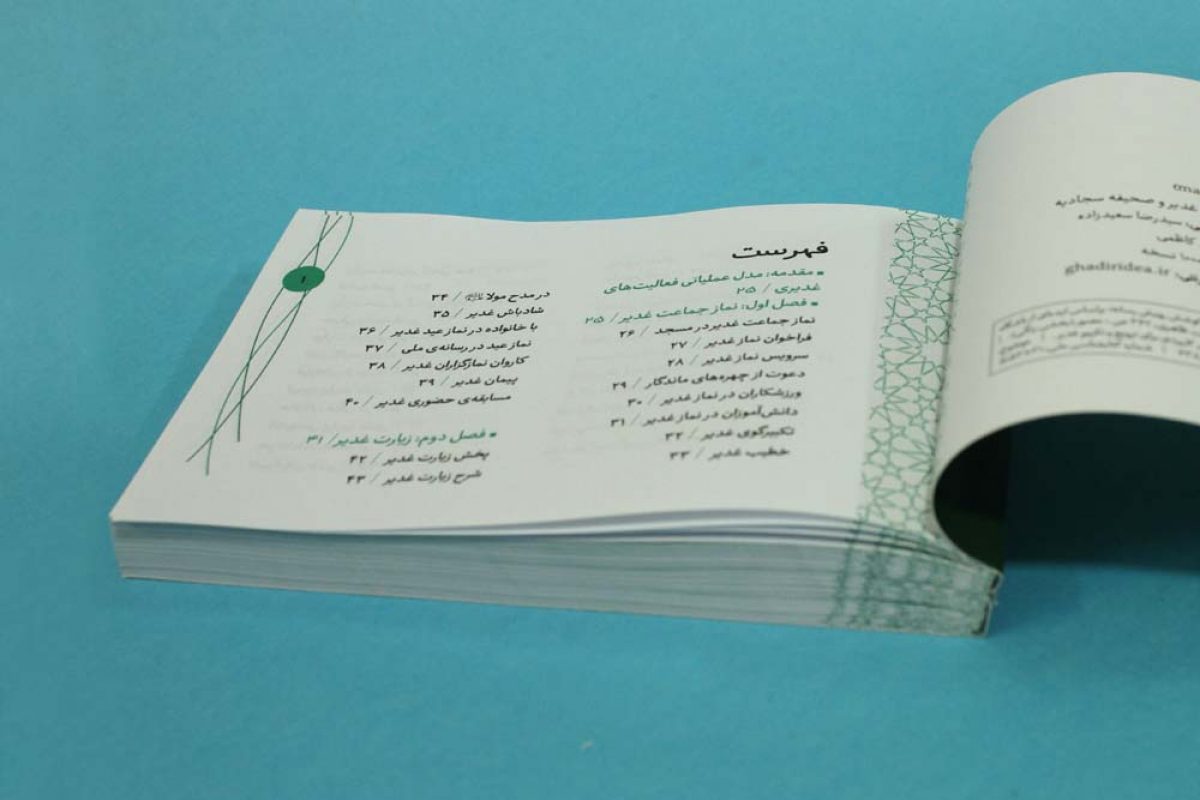 فهرست
▪ مقدمه: مدل عملیاتی فعالیت‌های
غدیری / ۲۵
▪ فصل اول: نماز جماعت غدیر/ ۲۵
نماز جماعت غدیر در مسجد / ۲۶
فراخوان نماز غدیر / ۲۷
سرویس نماز غدیر / ۲۸
دعوت از چهره‌های ماندگار / ۲۹
ورزشکاران در نماز غدیر / ۳۰
دانش‌آموزان در نماز غدیر / ۳۱
تکبیرگوی غدیر / ۳۲
خطیب غدیر / ۳۳
در مدح مولا / ۳۴
شادباش غدیر / ۳۵
با خانواده در نماز عید غدیر / ۳۶
نماز عید در رسانه‌ی ملی / ۳۷
کاروان نمازگزاران غدیر / ۳۸
پیمان غدیر / ۳۹
مسابقه‌ی حضوری غدیر / ۴۰
▪ فصل دوم: زیارت غدیر/ ۳۱
پخش زیارت غدیر / ۴۲
شرح زیارت غدیر / ۴۳
۱
غدیر و صحیفه سجادیه
سیدرضا سعیدزاده
کاظمی
نسخه
ghadiridea.ir